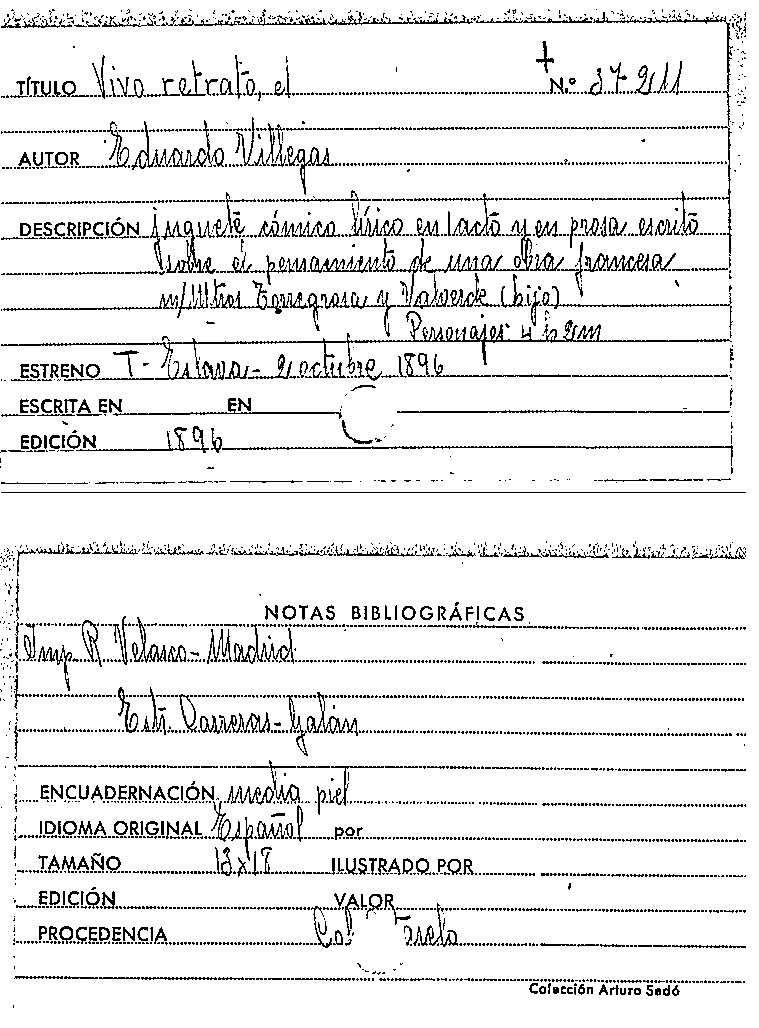 TÍTULO Vivo retrato, el
N.º 37-211
AUTOR Eduardo Villegas
DESCRIPCIÓN juguete cómico lírico en 1 acto y en prosa escrito
sobre el pensamiento de una obra francesa
m/ Mtros Torregrosa y Valverde (hijo)
Personajes 4 h 2 m
ESTRENO T- Eslava- 2 octubre 1896
ESCRITA EN EN
EDICIÓN 1896
NOTAS BIBLIOGRÁFICAS
Imp R Velasco- Madrid
Estr. Carreras- Galán
ENCUADERNACIÓN media piel
IDIOMA ORIGINAL Español por
TAMAÑO 13x18 ILUSTRADO POR
EDICIÓN VALOR
PROCEDENCIA Col
Colección Arturo Sedó